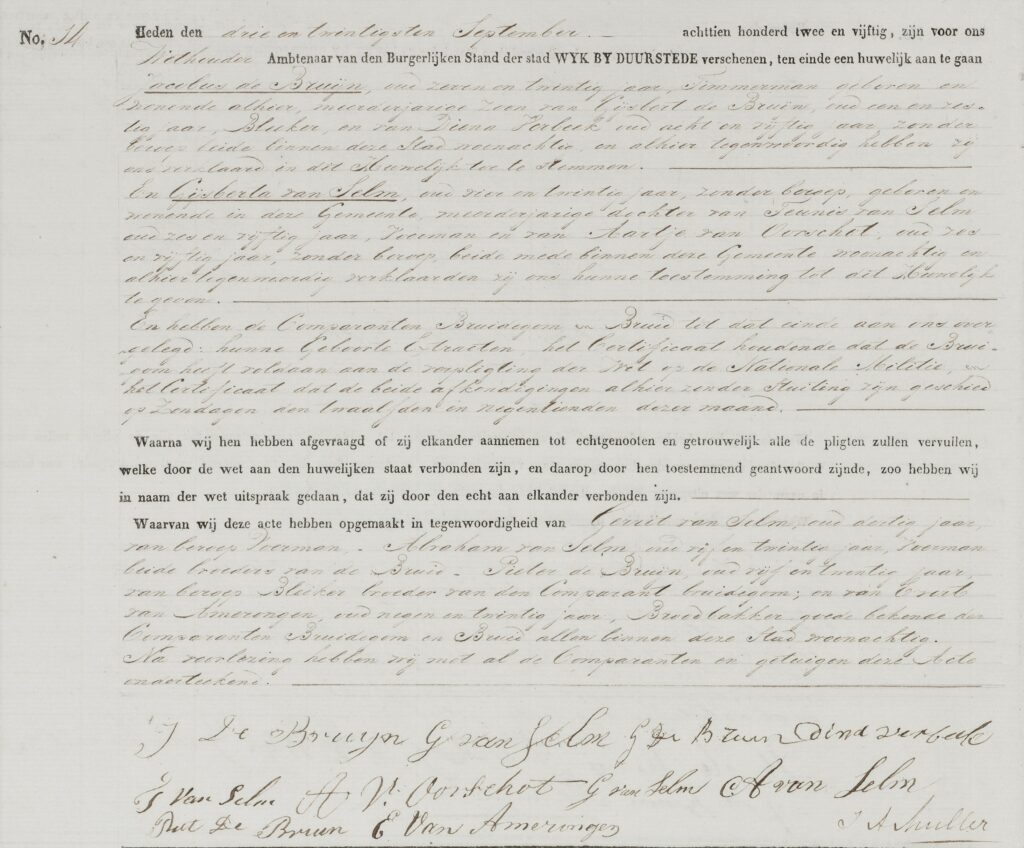 No. 14 Heden den drie en twintigsten September. — achttien honderd twee en vijftig, zijn voor ons
Wethouder Ambtenaar van den Burgerlijken Stand der stad WYK BY DUURSTEDE verschenen, ten einde een huwelijk aan te gaan
Jacobus de Bruijn, oud zeven en twintig jaar, Timmerman geboren en
wonende alhier, meerderjarige zoon van Gijsbert de Bruin, oud een en zes-
tig jaar, Bleeker, en van Diena Verbeek oud acht en vijftig jaar, zonder
beroep beide binnen deze Stad woonachtig, en alhier tegenwoordig hebben zij
ons verklaard in dit Huwelijk toe te stemmen.
En Gijsberta van Selm, oud vier en twintig jaar, zonder beroep, geboren en
wonende in deze Gemeente, meerderjarige dochter van Teunis van Selm
oud zes en vijftig jaar, Voerman en van Aartje van Oorschot, oud zes
en vijftig jaar, zonder beroep, beide mede binnen deze Gemeente woonachtig en
alhier tegenwoordig verklaarden zij ons hunne toestemming tot dit Huwelijk
te geven.
En hebben de Comparanten Bruidegom en Bruid tot dat einde aan ons over
gelegd: hunne Geboorte Extracten, het Certificaat houdende dat de Brui-
gom heeft voldaan aan de verpligting der Wet op de Nationale Militie, en
het Certificaat dat de beide afkondigingen alhier zonder Stuiting zijn geschied
op Zondagen den twaalfden en negentienden dezer maand.
Waarna wij hen hebben afgevraagd of zij elkander aannemen tot echtgenooten en getrouwelijk alle de pligten zullen vervullen,
welke door de wet aan den huwelijken staat verbonden zijn, en daarop door hen toestemmend geantwoord zijnde, zoo hebben wij
in naam der wet uitspraak gedaan, dat zij door den echt aan elkander verbonden zijn.
Waarvan wij deze acte hebben opgemaakt in tegenwoordigheid van Gerrit van Selm, oud dertig jaar,
van beroep Voerman, - Abraham van Selm, oud vijf en twintig jaar, Voerman
beide broeders van de Bruid - Pieter de Bruin, oud vijf en twintig jaar,
van beroep Bleeker broeder van den Comparant bruidegom; en van Evert
van Amerongen, oud negen en twintig jaar, Broodbakker goede bekende der
Comparanten Bruidegom en Bruid allen binnen deze Stad woonachtig.
Na voorlezing hebben wij met al de Comparanten en getuigen deze Acte
onderteekend.
J De Bruyn G van Selm G De Bruin Dina verbeek
T Van Selm A V. Oorschot G van Selm A van Selm
Piet De Bruin E Van Amerongen